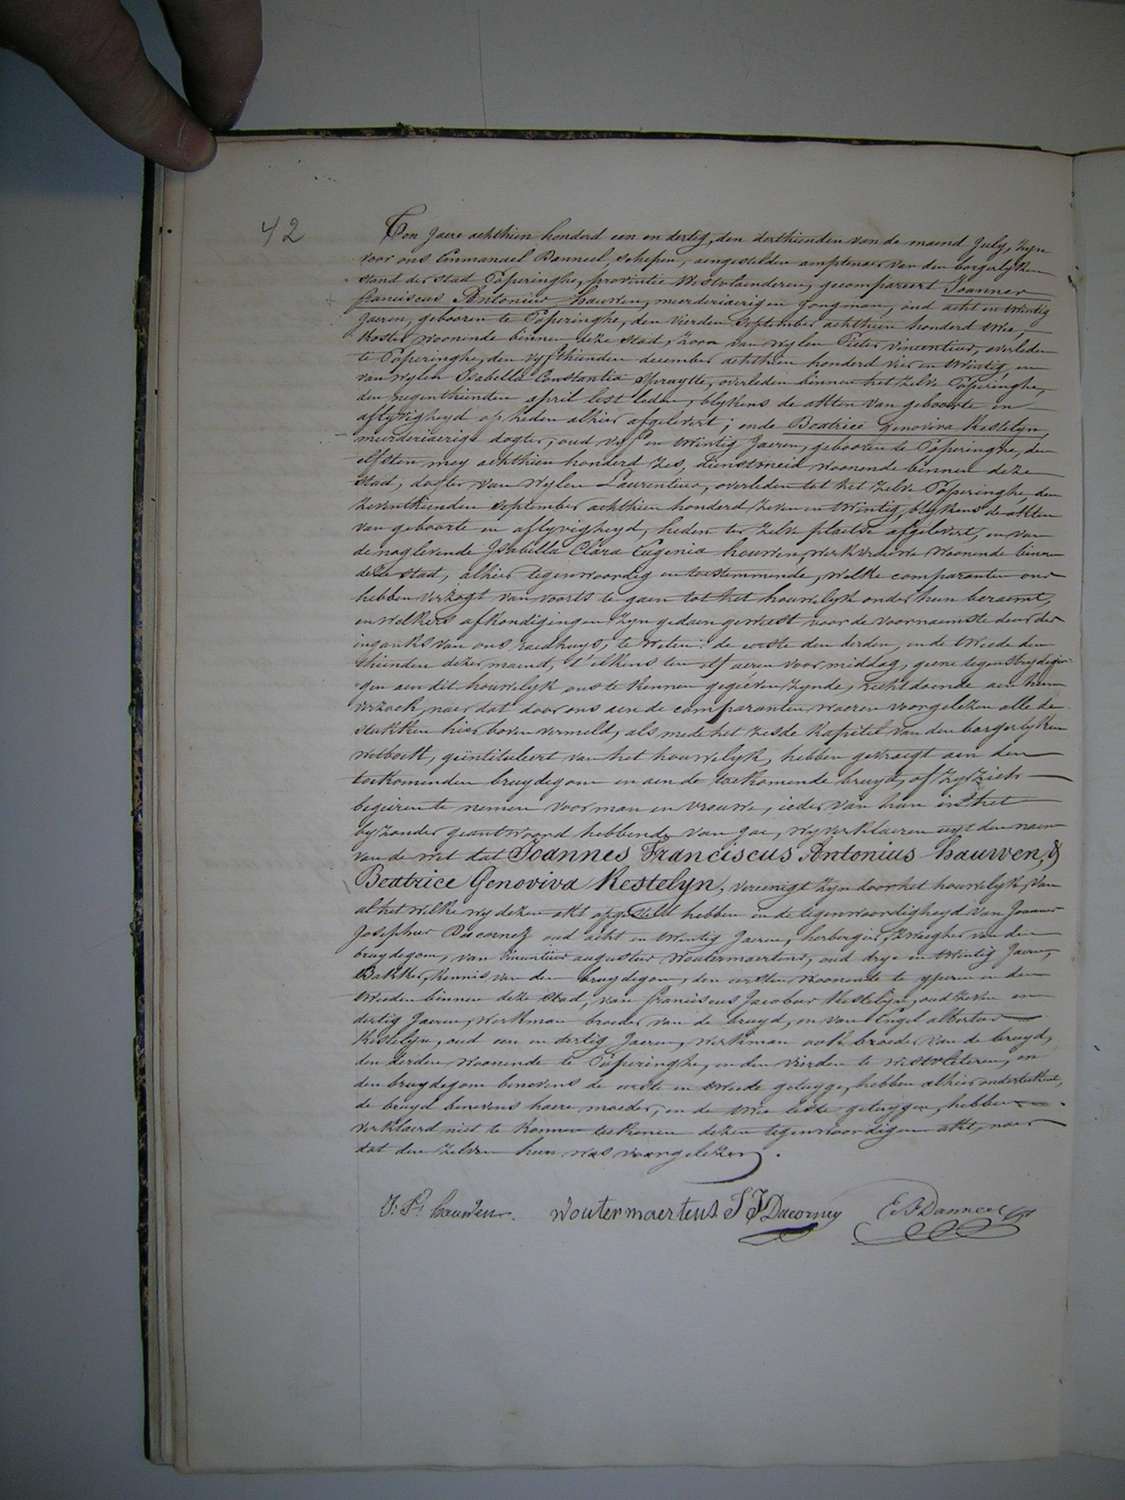 42
Ten Jaere achthien honderd een en dertig, den derthienden van de maend July, zyn
voor ons Emmanuel Danneel schepen, aengestelden amptenaer van den borgerlyken
stand der stad Poperinghe, provintie Westvlaenderen, gecompareert Joannes
franciscus Antonius hauwen, meerderjaerigen Jongman, oud acht en twintig
Jaeren, gebooren te Poperinghe, den vierden september achthien honderd twee,
koster woonende binnen deze stad, zoon van wylen Pieter vincentius, overleden
te Poperinghe, den vyfthienden december achthien honderd vier en twintig, en
van wylen Isabella Constantia Spruytte, overleden binnen het zelve Poperinghe,
den negenthienden april lest leden, blykens de akten van geboorte en
aflyvigheyd op heden alhier afgelevert; ende Beatrice Genoviva Kestelyn,
meerderjaerige dogter, oud vyf en twintig Jaeren, gebooren te Poperinghe, den
elfsten mey achthien honderd zes, dienstmeid, woonende binnen deze
stad, dogter van wylen Laurentius, overleden tot het zelve Poperinghe, den
zeventhienden september achthien honderd zeven en twintig, blykens de akten
van geboorte en aflyvigheyd, heden ter zelve plaetse afgelevert, en van
de naglevende Isabella Clara Eugenia houwen, werkvrouwe woonende binnen
deze stad, alhier tegenwoordig en toestemmende, welke comparanten ons
hebben verzogt van voorts te gaen tot het houwelyk onder hun beraemt,
en welkers afkondigingen zyn gedaen geweest voor de voornaemste deur der
ingank van ons raedhuys, te weten: de eerste den derden, en de tweede den
thienden dezer maend, t'elkens ten elf ueren voormiddag, geene tegenstrydigin-
gen aen dit houwelyk ons te kennen gegeéven zynde, recht doende aen hun
verzoek, naer dat door ons aen de comparanten waeren voorgelezen alle de
stukken hier boven vermeld, als mede het zesde kapitel van den borgerlyken
wetboek, geïntituleert van het houwelyk, hebben gevraegt aen den
toekomenden bruydegom en aen de toekomende bruyd, of zy zich
begeiren te nemen voor man en vrouwe, ieder van hun in het
byzonder geantwoord hebbende van jae, wy verklaeren uyt den naem
van de wet dat Joannes Franciscus Antonius hauwen, &
Beatrice Genoviva Kestelyn, vereenigt zyn door het houwelyk, van
al het welke wy dezen akt opgesteld hebben in de tegenwoordigheyd van Joannes
Josephus Dacorney oud acht en twintig Jaeren, herbergier, zwaegher van den
bruydegom, van vincentius augustus Woutermaertens, oud drye en twintig Jaeren,
Bakker, kennis van den bruydegom, den eersten woonende te yperen en den
tweeden binnen deze stad, van franciscus Jacobus Kestelyn, oud zeven en
dertig Jaeren, werkman broeder van de bruyd, en van Engel albertus
Kestelyn, oud een en dertig Jaeren, werkman ook broeder van de bruyd,
den derden woonende te Poperinghe, en den vierden te westvleteren, en
den bruydegom benevens de eerste en tweede getuyge, hebben alhier onderteekent,
de bruyd benevens haere moeder, en de twee leste getuygen, hebben
verklaerd niet te konnen teekenen dezen tegenwoordigen akt, naer
dat den zelven hun was voorgelezen.
J. F. hauwen. Woutermaertens J J Dacorney E. Danneel